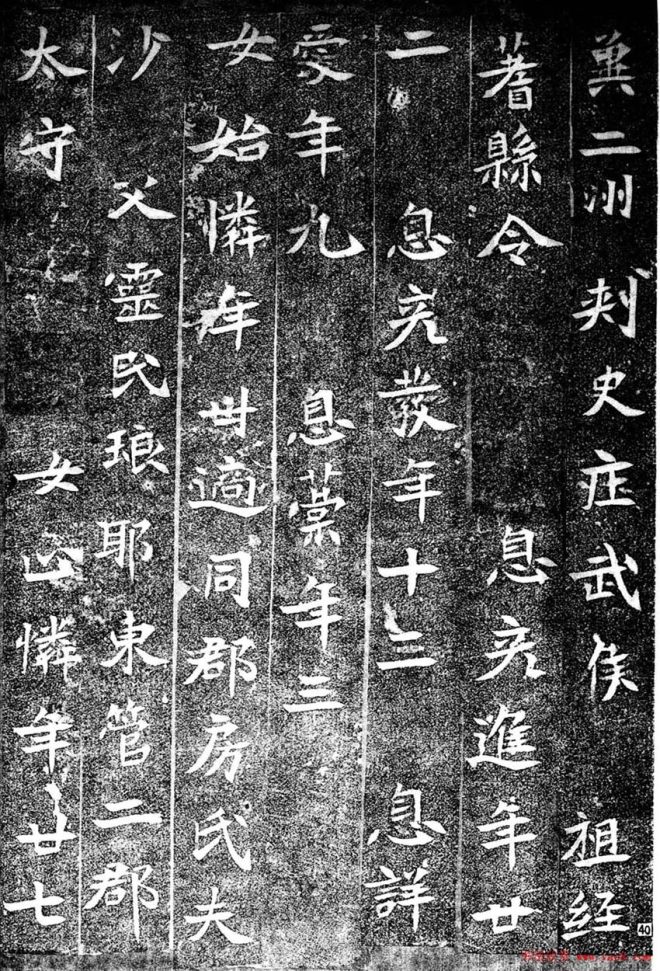 冀二州刾史庄武侯 祖經
蓍縣令 息亮進年廿
二 息亮發年十二 息詳
愛年九 息蘽年三
女始憐年卌適同郡房氏夫
沙 父靈民琅耶東管二郡
太守 女止憐年廿七
40